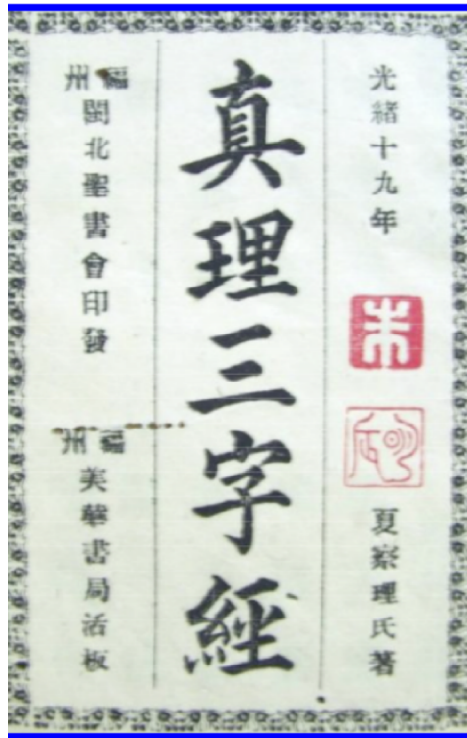 光緒十九年
夏察理氏著
真理三字經
福州
閩北聖書會印發
福州
美華書局活板